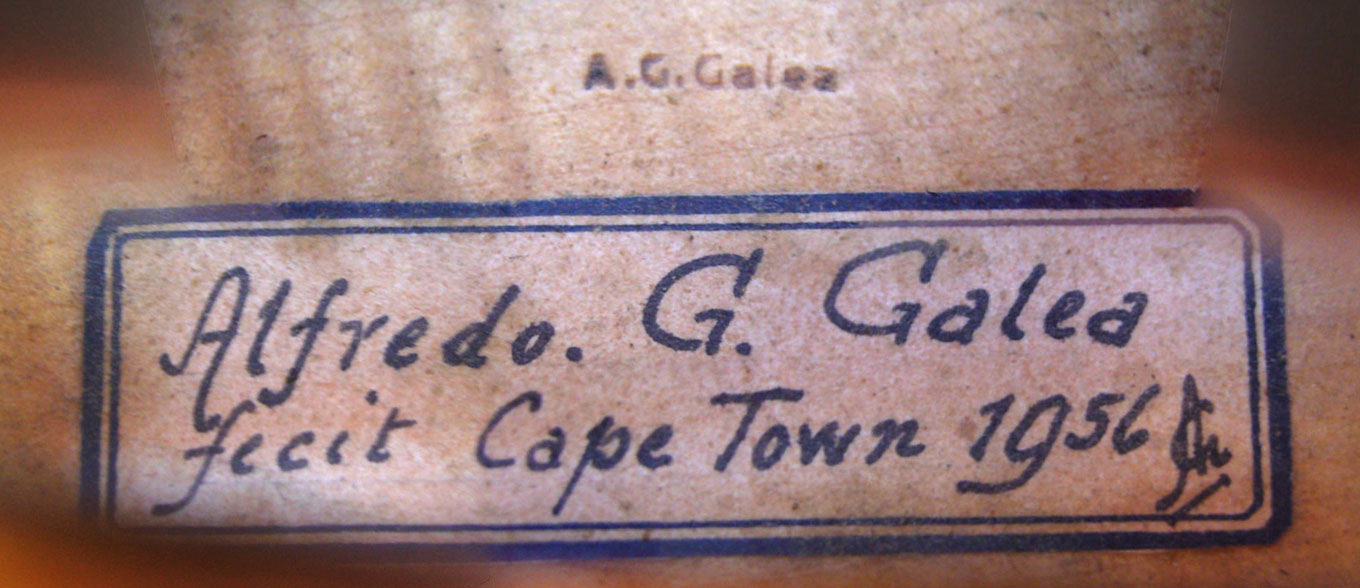 A.G.Galea
Alfredo. G. Galea
fecit Cape Town 1956